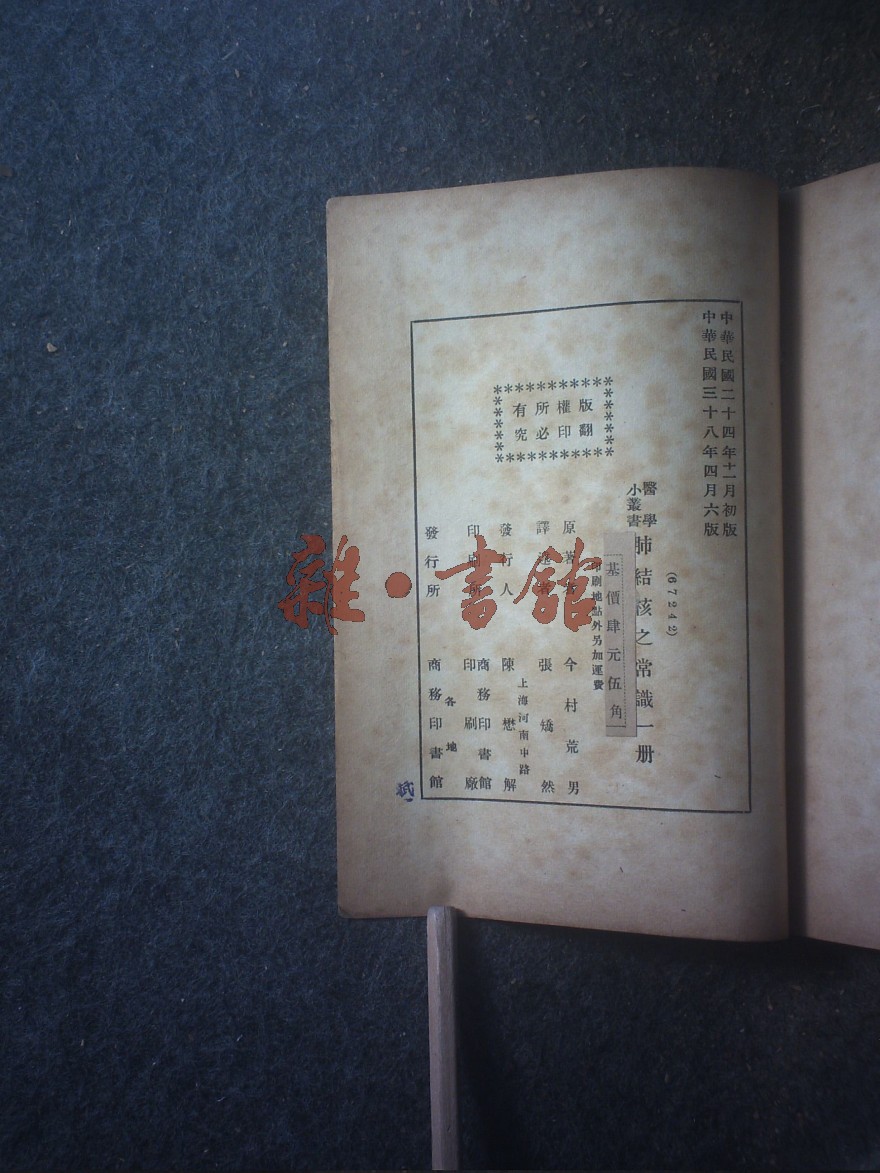 中華民國二十四年十一月初版
中華民國三十八年四月六版
(67242)
醫學
小叢書
肺結核之常識一册
基價肆元伍角
印刷地點外另加運費
版權所有
翻印必究
原著者 今村荒男
譯述者 張矯然
上海河南中路
發行人 陳懋解
印刷所 商務印書館
印刷廠
發行所 各地
商務印書館
雜·書館